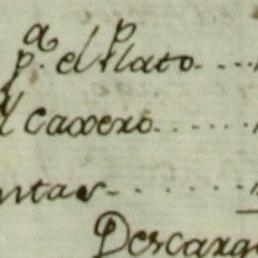 pª. el Plato
l Caxero
ntas
Descarg